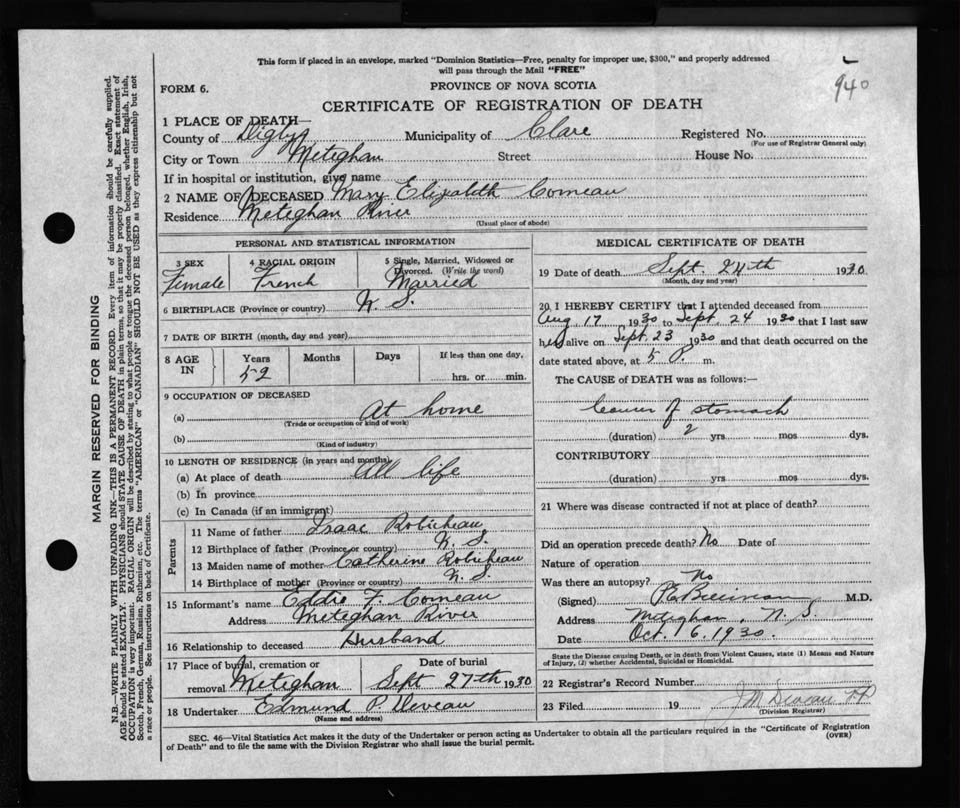 This form if placed in an envelope, marked "Dominion Statistics—Free, penalty for improper use, $300," and properly addressed
will pass through the Mail "FREE"
940
FORM 6.
PROVINCE OF NOVA SCOTIA
CERTIFICATE OF REGISTRATION OF DEATH
1 PLACE OF DEATH—
County of Digby Municipality of Clare Registered No.
(For use of Registrar General only)
City or Town Meteghan Street House No.
If in hospital or institution, give name
2 NAME OF DECEASED Mary Elizabeth Comeau
Residence Meteghan River
(Usual place of abode)
PERSONAL AND STATISTICAL INFORMATION
3 SEX 4 RACIAL ORIGIN 5 Single, Married, Widowed or
Divorced. (Write the word)
Female French Married
6 BIRTHPLACE (Province or country) N. S.
7 DATE OF BIRTH (month, day and year)
8 AGE IN Years Months Days If less than one day,
52 hrs. or min.
9 OCCUPATION OF DECEASED
(a) At home
(Trade or occupation or kind of work)
(b)
(Kind of industry)
10 LENGTH OF RESIDENCE (in years and months)
(a) At place of death All life
(b) In province
(c) In Canada (if an immigrant)
Parents
11 Name of father Isaac Robicheau
12 Birthplace of father (Province or country) N. S.
13 Maiden name of mother Catherine Robicheau
14 Birthplace of mother (Province or country) N. S.
15 Informant's name Eddie F. Comeau
Address Meteghan River
16 Relationship to deceased Husband
17 Place of burial, cremation or Date of burial
removal Meteghan Sept 27th 1930
18 Undertaker Edmund P. Deveau
(Name and address)
MEDICAL CERTIFICATE OF DEATH
19 Date of death Sept. 24th 1930
(Month, day and year)
20 I HEREBY CERTIFY that I attended deceased from
Aug 17 1930 to Sept. 24 1930 that I last saw
her alive on Sept. 23 1930 and that death occurred on the
date stated above, at 5 P. m.
The CAUSE OF DEATH was as follows:—
Cancer of stomach
(duration) 2 yrs mos dys.
CONTRIBUTORY
(duration) yrs mos dys.
21 Where was disease contracted if not at place of death?
Did an operation precede death? No Date of
Nature of operation
Was there an autopsy? No
(Signed) M.D.
Address Meteghan, N. S.
Date Oct. 16, 1930.
State the Disease causing Death, or in death from Violent Causes, state (1) Means and Nature
of Injury, (2) whether Accidental, Suicidal or Homicidal.
22 Registrar's Record Number
23 Filed 19 J M Deveau
(Division Registrar)
SEC. 46—Vital Statistics Act makes it the duty of the Undertaker or person acting as Undertaker to obtain all the particulars required in the "Certificate of Registration
of Death" and to file the same with the Division Registrar who shall issue the burial permit.
(OVER)
MARGIN RESERVED FOR BINDING
N.B.—WRITE PLAINLY WITH UNFADING INK—THIS IS A PERMANENT RECORD. Every item of information should be carefully supplied.
AGE should be stated EXACTLY. PHYSICIANS should STATE CAUSE OF DEATH in plain terms, so that it may be properly classified. Exact statement of
OCCUPATION is very important. RACIAL ORIGIN will be described by stating to what people or tongue the deceased person belonged, whether English, Irish,
Scotch, French, German, Russian, Ruthenian, etc. The terms "AMERICAN" or "CANADIAN" SHOULD NOT BE USED as they express citizenship but not
a race or people. See instructions on back of Certificate.